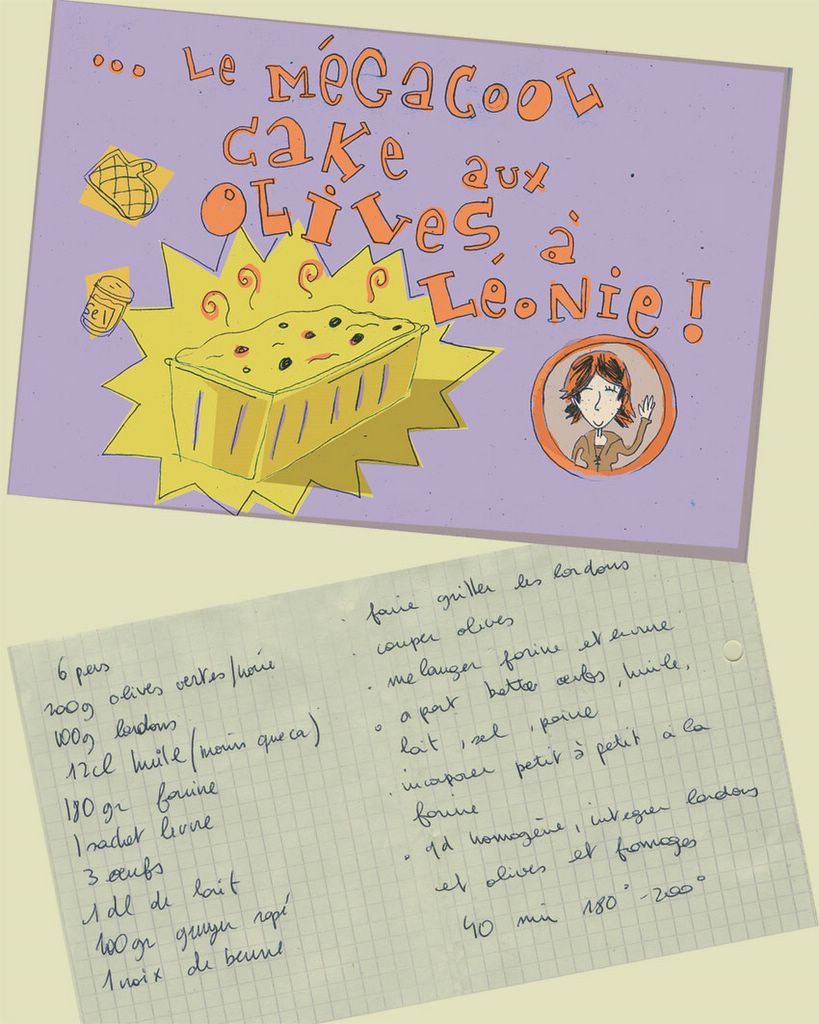 ... Le MÉGACOOL
CAKE AUX
OLIVES à
LÉONIE !
SEL
6 pers
200g olives vertes/noire
100g lardons
12cl huile (moins que ca)
180 gr farine
1 sachet levure
3 oeufs
1 dl de lait
100 gr gruyer rapé
1 noix de beurre
. faire griller les lardons
. couper olives
. melanger farine et levure
. a part battre oeufs, huile,
lait, sel, poivre
. incorporer petit à petit à la
farine
. qd homogène, integrer lardons
et olives et fromages
40 min 180° - 200°